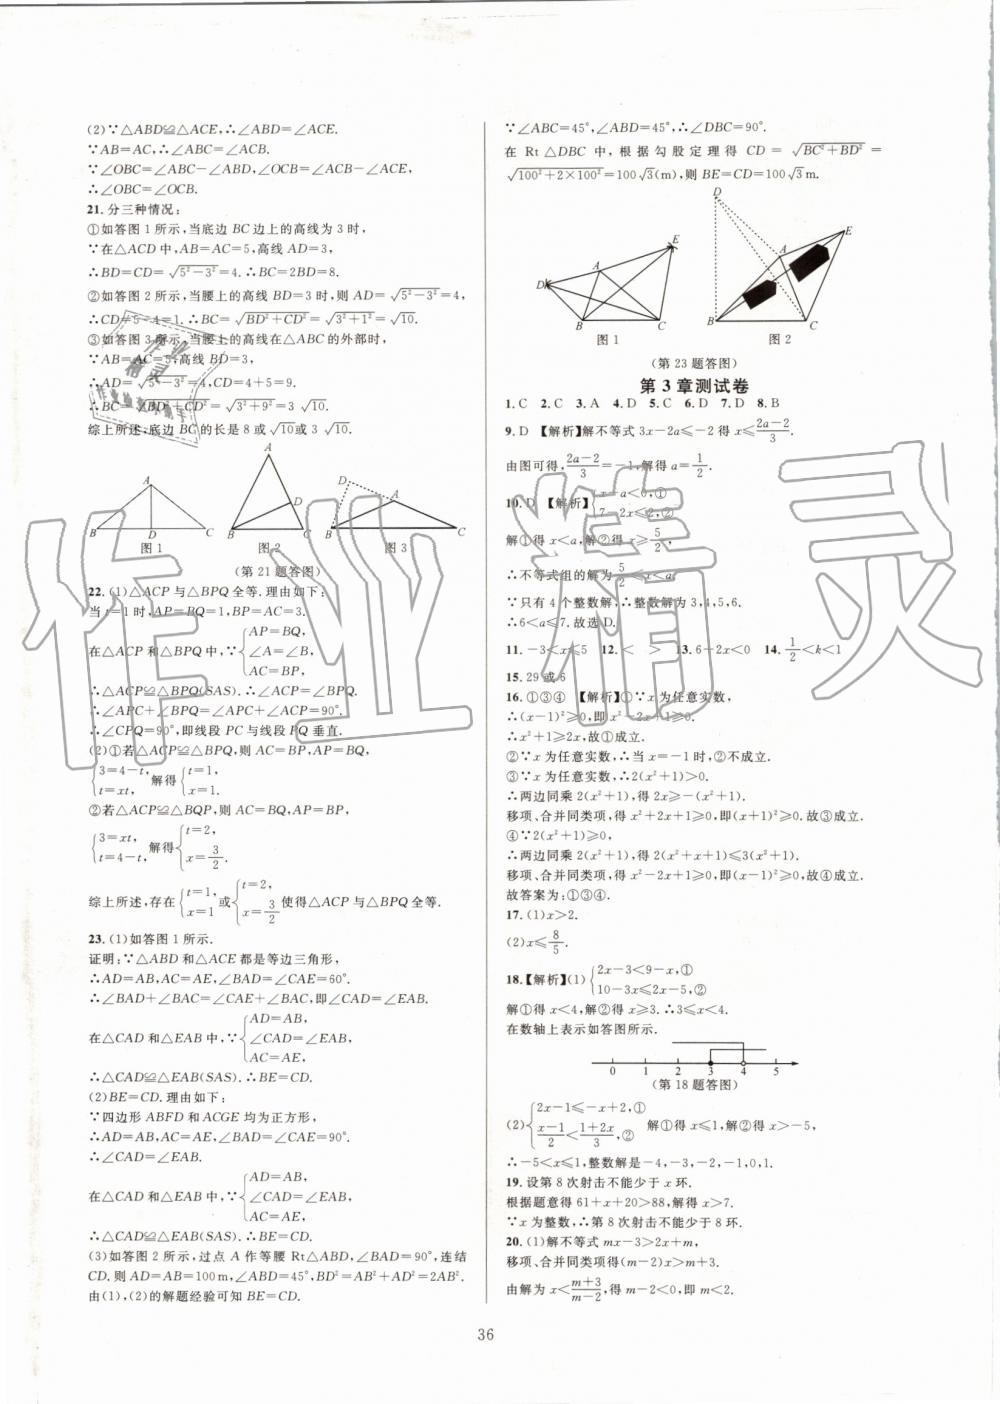 (2)∵△ABD≌△ACE,∴∠ABD=∠ACE.
∵AB=AC,∴∠ABC=∠ACB.
∵∠OBC=∠ABC-∠ABD,∠OCB=∠ACB-∠ACE,
∴∠OBC=∠OCB.
21.分三种情况:
①如答图1所示,当底边BC边上的高线为3时,
∵在△ACD中,AB=AC=5,高线AD=3,
∴BD=CD=√(5²-3²)=4.∴BC=2BD=8.
②如答图2所示,当腰上的高线BD=3时,则AD=√(5²-3²)=4,
∴CD=5-4=1.∴BC=√(BD²+CD²)=√(3²+1²)=√10.
③如答图3所示,当腰上的高线在△ABC的外部时,
∵AB=AC=5,高线BD=3,
∴AD=√(5²-3²)=4,CD=4+5=9.
∴BC=√(BD²+CD²)=√(3²+9²)=3√10.
综上所述,底边BC的长是8或√10或3√10.
A B D C
图1
A D B C
图2
D A B C
图3
(第21题答图)
22.(1)△ACP与△BPQ全等.理由如下:
当t=1时,AP=BQ=1,BP=AC=3.
在△ACP和△BPQ中,∵{AP=BQ,
∠A=∠B,
AC=BP.
∴△ACP≌△BPQ(SAS).∴∠ACP=∠BPQ.
∴∠APC+∠BPQ=∠APC+∠ACP=90°.
∴∠CPQ=90°,即线段PC与线段PQ垂直.
(2)①若△ACP≌△BPQ,则AC=BP,AP=BQ,
{3=4-t, t=xt, 解得{t=1, x=1.
②若△ACP≌△BQP,则AC=BQ,AP=BP,
{3=xt, t=4-t, 解得{t=2, x=3/2.
综上所述,存在{t=1, x=1或{t=2, x=3/2使得△ACP与△BPQ全等.
23.(1)如答图1所示.
证明:∵△ABD和△ACE都是等边三角形,
∴AD=AB,AC=AE,∠BAD=∠CAE=60°.
∴∠BAD+∠BAC=∠CAE+∠BAC,即∠CAD=∠EAB.
在△CAD和△EAB中,∵{AD=AB,
∠CAD=∠EAB,
AC=AE,
∴△CAD≌△EAB(SAS).∴BE=CD.
(2)BE=CD.理由如下:
∵四边形ABFD和ACGE均为正方形,
∴AD=AB,AC=AE,∠BAD=∠CAE=90°.
∴∠CAD=∠EAB.
在△CAD和△EAB中,∵{AD=AB,
∠CAD=∠EAB,
AC=AE,
∴△CAD≌△EAB(SAS).∴BE=CD.
(3)如答图2所示,过点A作等腰Rt△ABD,∠BAD=90°,连结
CD.则AD=AB=100m,∠ABD=45°,BD²=AB²+AD²=2AB².
由(1),(2)的解题经验可知BE=CD.
∵∠ABC=45°,∠ABD=45°,∴∠DBC=90°.
在Rt△DBC中,根据勾股定理得CD=√(BC²+BD²)=
√(100²+2×100²)=100√3(m),则BE=CD=100√3m.
E A D B C
图1
D A E B C
图2
(第23题答图)
第3章测试卷
1.C 2.C 3.A 4.D 5.C 6.D 7.D 8.B
9.D 【解析】解不等式3x-2a≤-2得x≤(2a-2)/3.
由图可得,(2a-2)/3=-1,解得a=-1/2.
10.D 【解析】{x-a<0,①
7-2x≤2,②
解①得x<a,解②得x≥5/2,
∴不等式组的解为5/2≤x<a.
∵只有4个整数解,∴整数解为3,4,5,6.
∴6<a≤7.故选D.
11.-3<x≤5 12.< > 13.6-2x<0 14.1/2<k<1
15.29或6
16.①③④ 【解析】①∵x为任意实数,
∴(x-1)²≥0,即x²-2x+1≥0.
∴x²+1≥2x,故①成立.
②∵x为任意实数,∴当x=-1时,②不成立.
③∵x为任意实数,∴2(x²+1)>0.
∴两边同乘2(x²+1),得2x≥-(x²+1).
移项、合并同类项,得x²+2x+1≥0,即(x+1)²≥0.故③成立.
④∵2(x²+1)>0,
∴两边同乘2(x²+1),得2(x²+x+1)≤3(x²+1).
移项、合并同类项,得x²-2x+1≥0,即(x-1)²≥0.故④成立.
故答案为:①③④.
17.(1)x>2.
(2)x≤8/5.
18.【解析】(1){2x-3<9-x,①
10-3x≤2x-5,②
解①得x<4,解②得x≥3.∴3≤x<4.
在数轴上表示如答图所示.
0 1 2 3 4 5
(第18题答图)
(2){2x-1≤-x+2,①
(x-1)/2<(1+2x)/3,② 解①得x≤1,解②得x>-5,
∴-5<x≤1,整数解是-4,-3,-2,-1,0,1.
19.设第8次射击不能少于x环.
根据题意得61+x+20>88,解得x>7.
∵x为整数,∴第8次射击不能少于8环.
20.(1)解不等式mx-3>2x+m,
移项、合并同类项得(m-2)x>m+3.
由解为x<(m+3)/(m-2),得m-2<0,即m<2.
36
作业精灵